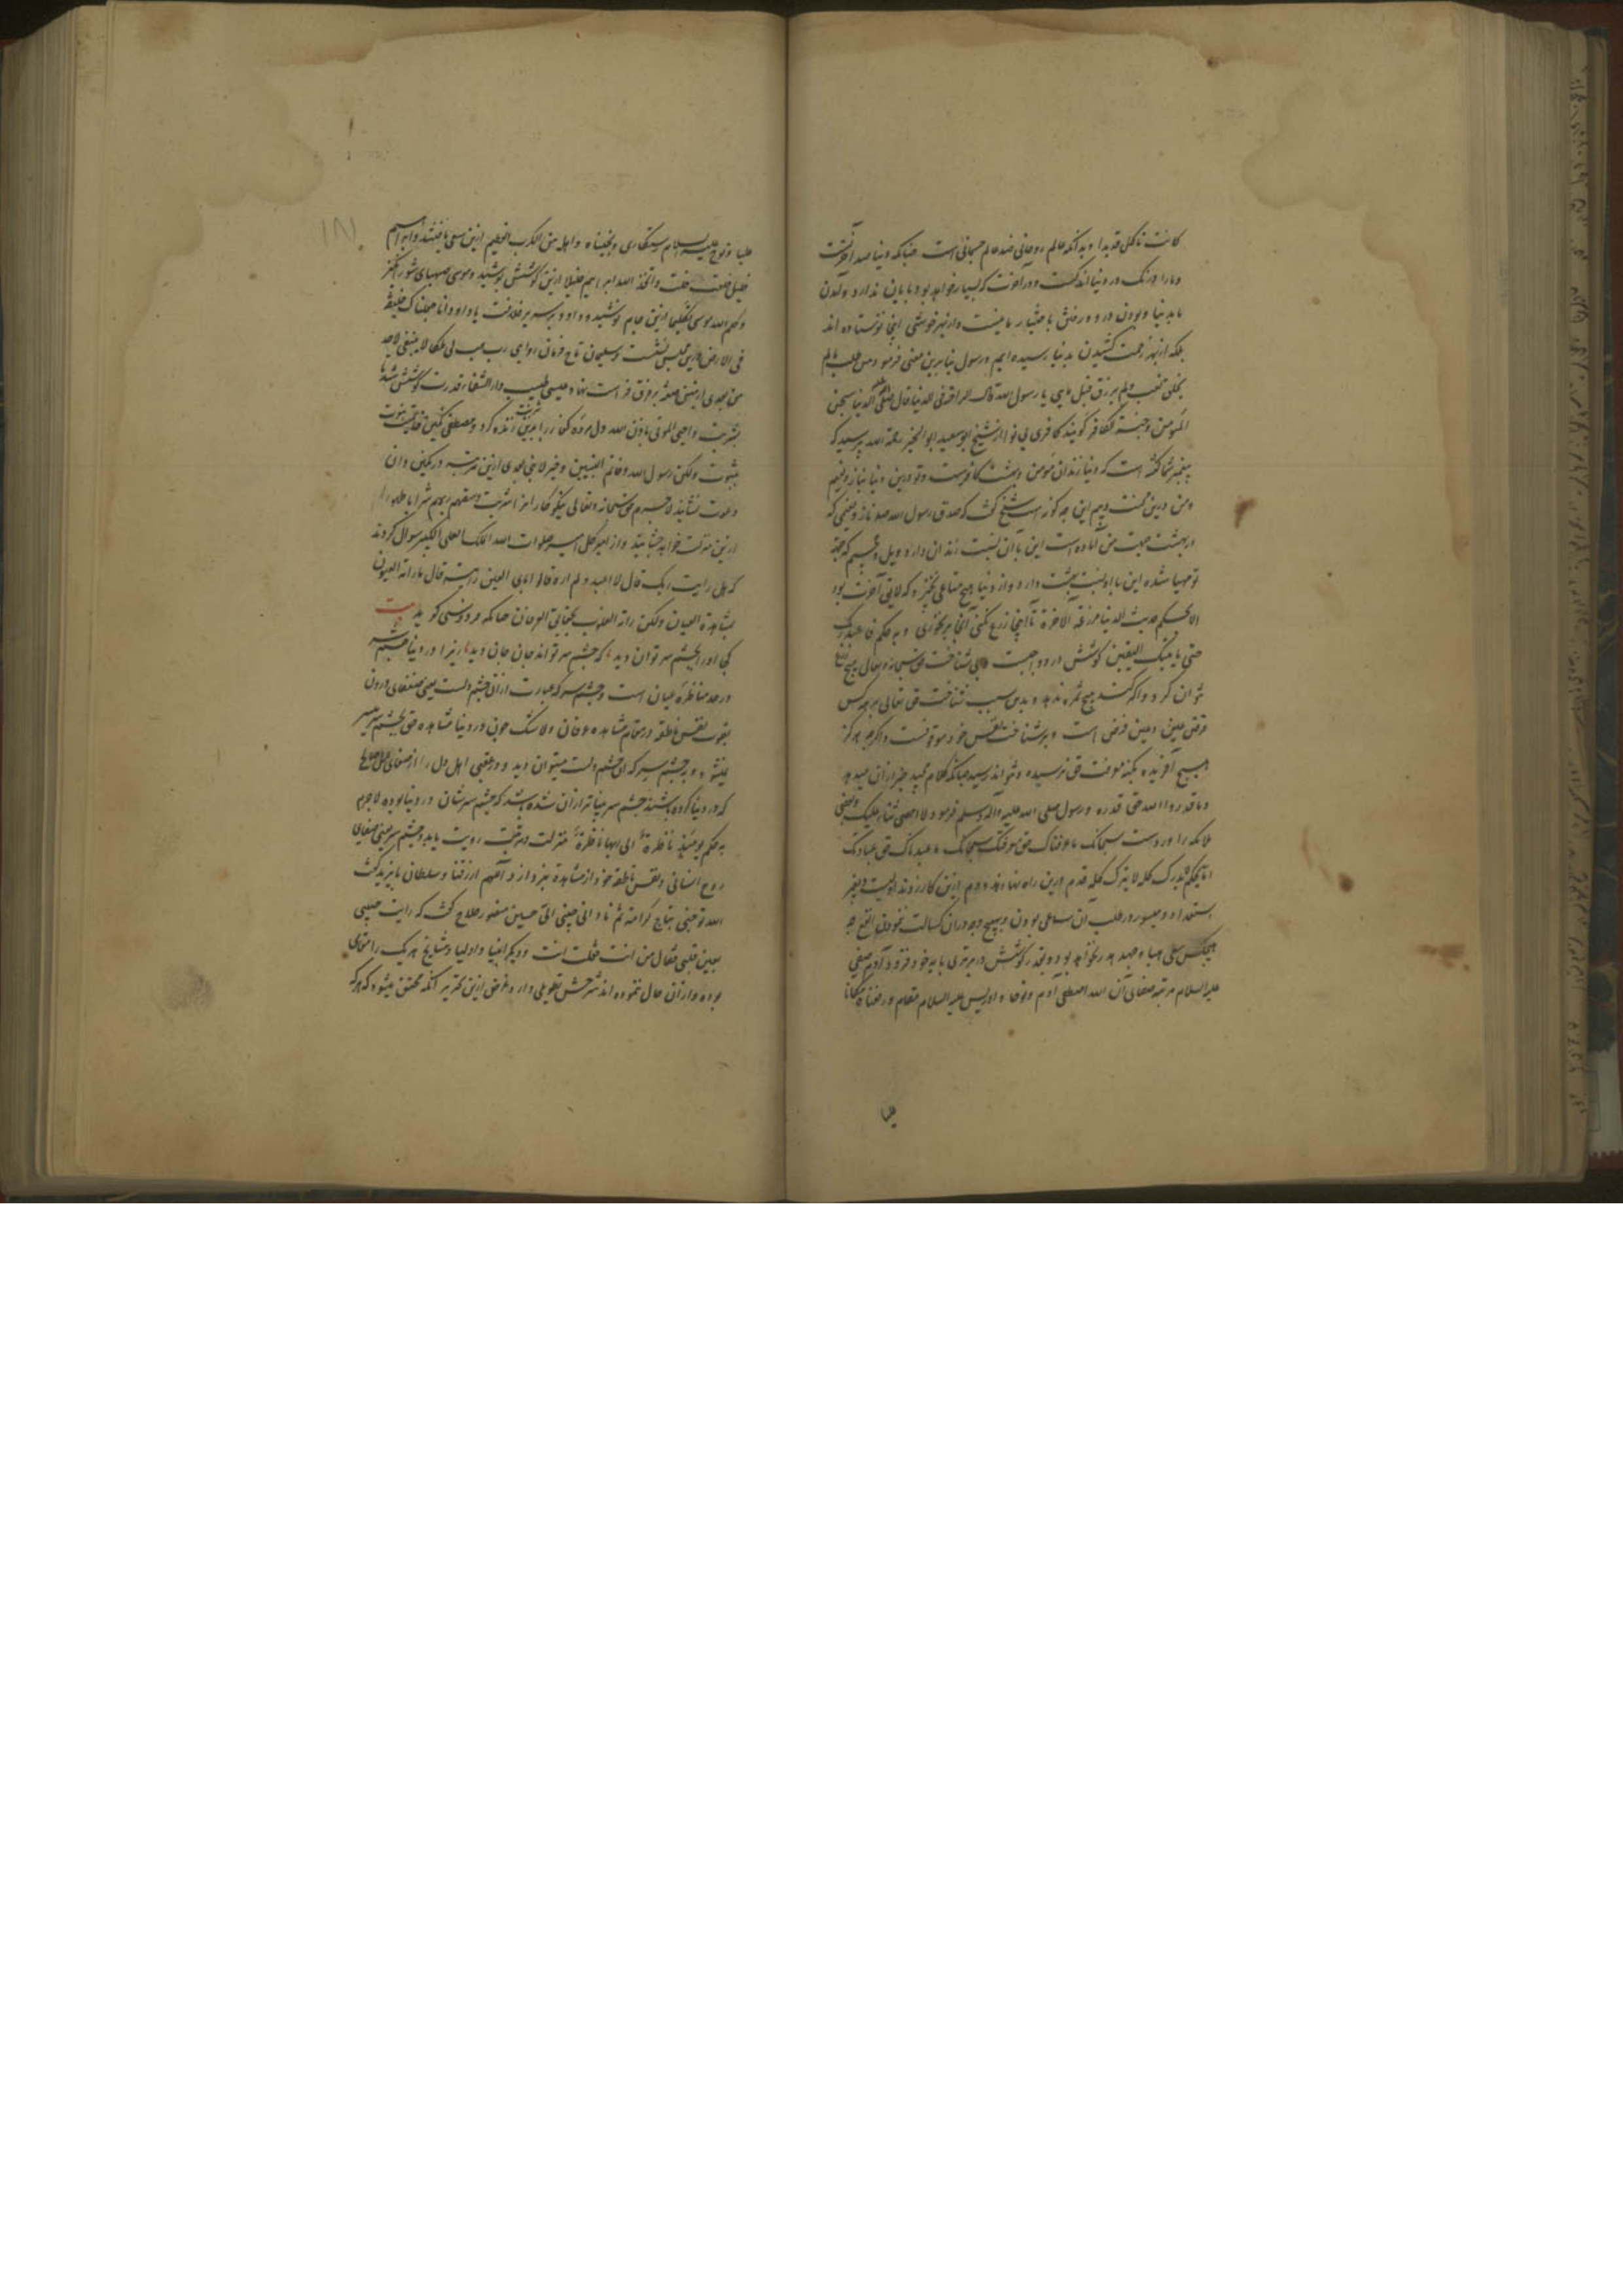 کانت تاکل قدیدا و بدانکه عالم روحانی ضد عالم جسمانی است چنانکه دنیا ضد آخرتست
و ما را درنک در دنیا اندکست و در آخرت که بسیار خواهد بود پایان ندارد و آمدن
ما بدنیا و بودن درو و رفتن باختیار ما نیست و از بهر خوشی اینجا نفرستاده اند
بلکه از بهر زحمت کشیدن بدنیا رسیده ایم و رسول بنابرین معنی فرمود من طلب مالم
یخلق تعب ولم یرزق قیل ماهی یا رسول الله قال الراحة فی الدنیا قال صلعم الدنیا سجن
المؤمن و جنة الکافر کویند کافری بی نوا از شیخ ابوسعید ابوالخیر رحمة الله پرسید که
پیغمبر شما کفته است که دنیا زندان مؤمن و بهشت کافرست و تو درین دنیا بناز و نعیم
و من درین محنت و بیم این چه کونه است شیخ کفت که صدق رسول الله صلعم ناز و نعیمی که
در بهشت جهت من آماده است این با آن نسبت زندان دارد و ویل و جحیم که جهة
تو مهیا شده این با او نسبت بهشت دارد و از دنیا هیچ متاعی نخیزد که لایق آخرت بود
الا بحکم حدیث الدنیا مزرعة الآخرة تا اینجا زرع نکنی آنجا بر نخوری و به حکم فاعبد ربک
حتی یاتیک الیقین کوشش درو واجبست و بی شناخت حق سبحانه و تعالی هیچ
توان کرد و اگر کنند هیچ ثمره ندهد و بدین سبب شناخت حق تعالی بر همه کس
فرض عین و عین فرض است و بر شناخت نفس خود موقوفست و اکرچه هرکز
هیچ آفریده بکنه معرفت حق نرسیده و نتواند رسید چنانکه کلام مجید خبر از آن میدهد
و ما قدروا الله حق قدره و رسول صلی الله علیه و آله وسلم فرمود لا احصی ثناء علیک
ملائکه را ورد است سبحانک ما عرفناک حق معرفتک سبحانک ما عبدناک حق عبادتک
اما بحکم ما لا یدرک کله لا یترک کله قدم درین راه نهادن و دم ازین کار زدن اولیست و بقدر
استعداد و میسور در طلب آن ساعی بودن و بهیچ وجه در آن کسالت ننمودن
هیچکس سعی هباء و جهد هدر نخواهد بود و بقدر کوشش در برتری پایه خود فزود آدم صفی
علیه السلام مرتبه صفای ان الله اصطفی آدم و نوحا و ادریس علیه السلام مقام و رفعناه مکانا
علیا
۱۸۱
علیا و نوح علیه السلام رستکاری و نجیناه و اهله من الکرب العظیم ازین سعی یافتند و ابراهیم
خلیل خلعت خلت و اتخذ الله ابراهیم خلیلا ازین کوشش پوشید و موسی صهبای شورانکیز
و کلم الله موسی تکلیما ازین جام نوشید و داود بر سریر خلافت یا داود انا جعلناک خلیفة
فی الارض درین مجلس نشست و سلیمان تاج فرمان روایی رب هب لی ملکا لا ینبغی لاحد
من بعدی ازین صفه بر فرق فراست نهاد و عیسی طبیب دار الشفاء قدرت کوشش شد تا
بشربت و احیی الموتی باذن الله دل مرده کفار را برین زنده کرد و مصطفی نکین خاتم نبوت
بثبوت ولکن رسول الله و خاتم النبیین و خبر لا نبی بعدی ازین مرتبه در نکین دان
دعوت نشانید لاجرم حق سبحانه و تعالی نیکوکار انرا شربت و سقیهم ربهم شرابا طهورا
ازین منزلت خواهد چشانید و از امیر کل امیر صلوات الله الملک العلی الکبیر سوال کردند
که هل رایت ربک قال لا اعبد و لم اره قالوا بای العین رایته قال ما راته العیون
بمشاهدة العیان ولکن راته القلوب بحقایق العرفان چنانکه فردوسی کوید بیت
کی او را بچشم سر توان دید که چشم سر تواند جان جان دید زیرا در دنیا چشم سر
در حد مناظره عیان است و چشم سر که عبارت از آن چشم دلست یعنی صفای درون
بقوت نفس ناطقه در مقام مشاهده عرفان و لا شک چون در دنیا مشاهده حق بچشم سر میسر
نمیشود و بچشم سر که آن چشم دلست میتوان دید و در عقبی اهل دل را از صفای عمل صالح
که در دنیا کرده باشند چشم سر بینا تر از آن شده باشد که چشم سرشان در دنیا بوده لاجرم
به حکم یومئذ ناضرة الی ربها ناظرة منزلت و مرتبت رویت یابد و چشم سر یعنی صفای
روح انسانی و نفس ناطقه خود از مشاهدة نپردازد اللهم ارزقنا و سلطان بایزید کفت
الله توجنی بتاج کرامته ثم نادانی حبیبی الی حسین منصور حلاج کفت که رایت حبیبی
بعین قلبی فقال من انت فقلت انت و دیکر انبیا و اولیا و مشایخ هر یک را مقامی
بوده و از آن حال ننموده اند شرحش تطویلی دارد و غرض ازین تحریر آنکه محقق میشود که هرکه